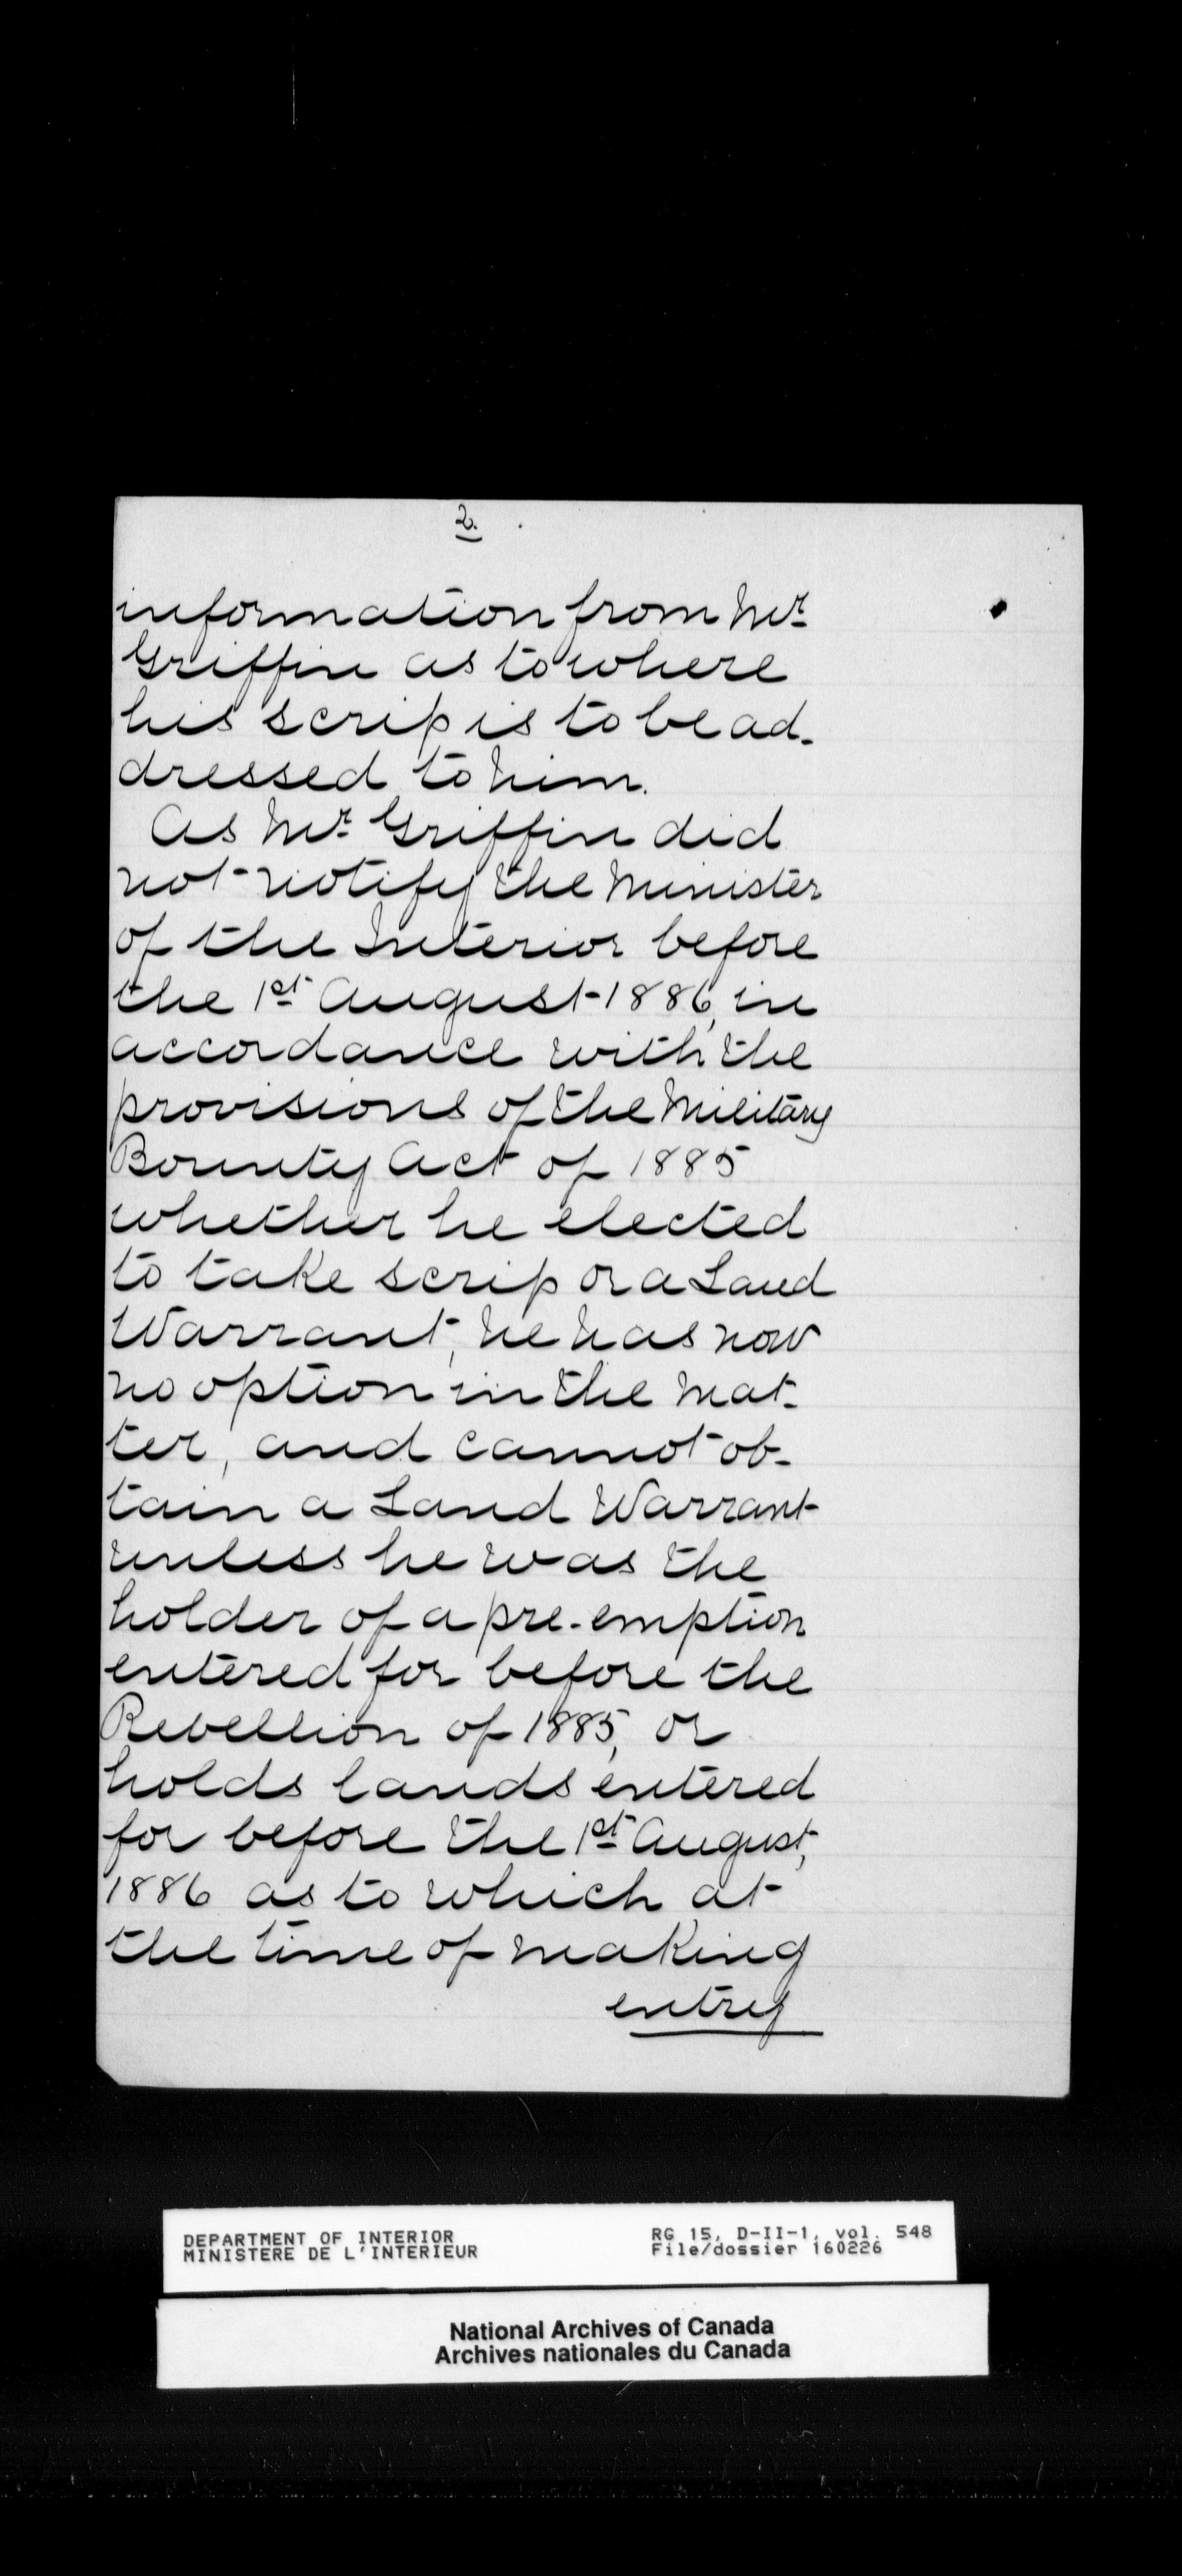 2.
information from Mr.
Griffin as to where
his scrip is to be ad-
dressed to him.
As Mr. Griffin did
not notify the Minister
of the Interior before
the 1st August 1886, in
accordance with the
provisions of the Military
Bounty Act of 1885
whether he elected
to take scrip or a Land
Warrant, he has now
no option in the mat-
ter, and cannot ob-
tain a Land Warrant
unless he was the
holder of a pre-emption
entered for before the
Rebellion of 1885, or
holds lands entered
for before the 1st August,
1886 as to which at
the time of making
entry
DEPARTMENT OF INTERIOR RG 15, D-II-1, vol. 548
MINISTERE DE L'INTERIEUR File/dossier 160226
National Archives of Canada
Archives nationales du Canada